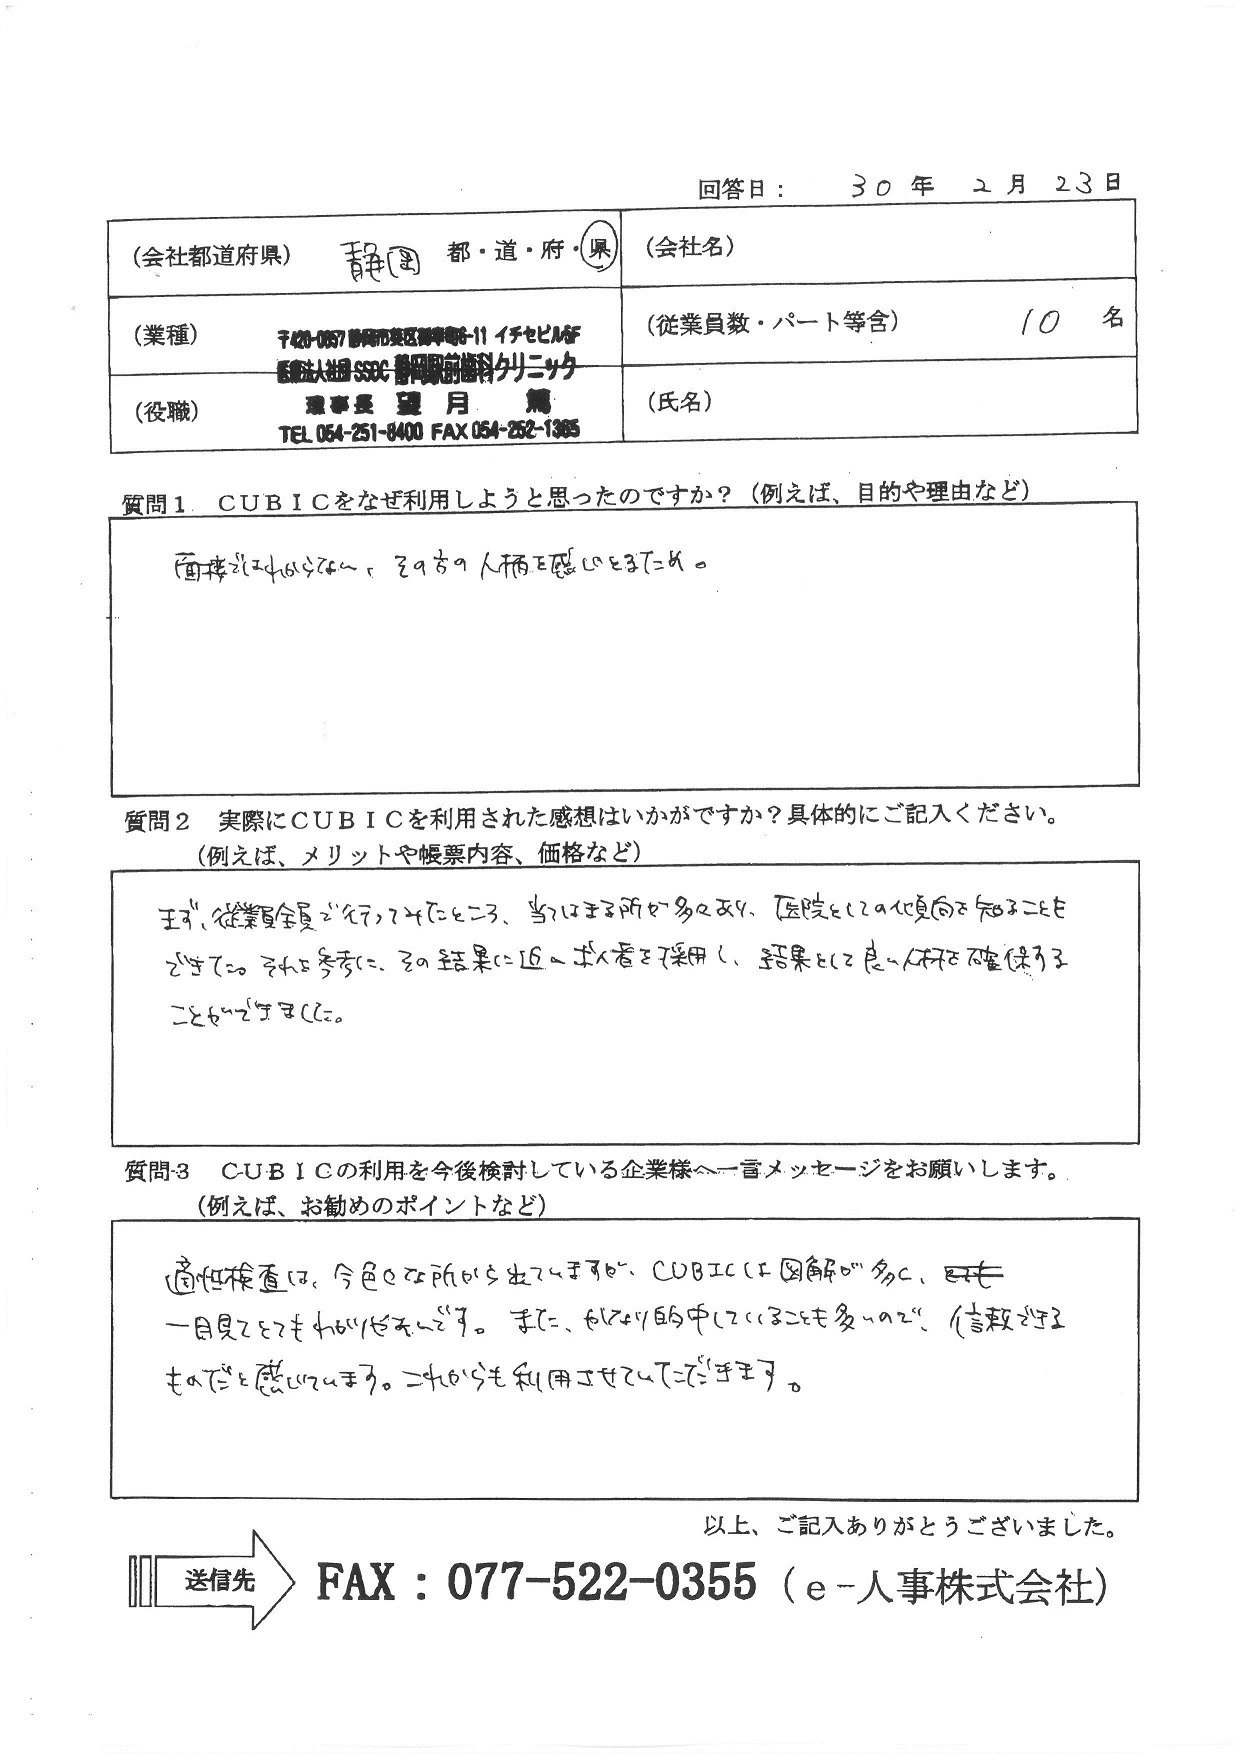 回答日： 30年 2月 23日
(会社都道府県) 静岡 都・道・府・県
(会社名)
(業種)
〒420-0857 静岡市葵区御幸町6-11 イチセビル5F
(従業員数・パート等含) 10 名
医療法人社団SSDC 静岡駅前歯科クリニック
(役職)
理事長 望月 篤
(氏名)
TEL 054-251-8400 FAX 054-252-1365
質問1 CUBICをなぜ利用しようと思ったのですか？（例えば、目的や理由など）
面接ではわからない、その方の人柄を感じとるため。
質問2 実際にCUBICを利用された感想はいかがですか？具体的にご記入ください。
（例えば、メリットや帳票内容、価格など）
まず、従業員全員で行ってみたところ、当てはまる所が多々あり、医院としての傾向を知ることを
できた。それを参考に、その結果に近い求人者を採用し、結果として良い人材を確保する
ことができました。
質問3 CUBICの利用を今後検討している企業様へ一言メッセージをお願いします。
（例えば、お勧めのポイントなど）
適性検査は、今色々な所から出ていますが、CUBICは図解が多く、
一目見てとてもわかりやすいです。また、かなり的中していることも多いので、信頼できる
ものだと感じています。これからも利用させていただきます。
以上、ご記入ありがとうございました。
送信先 FAX：077-522-0355（e-人事株式会社）